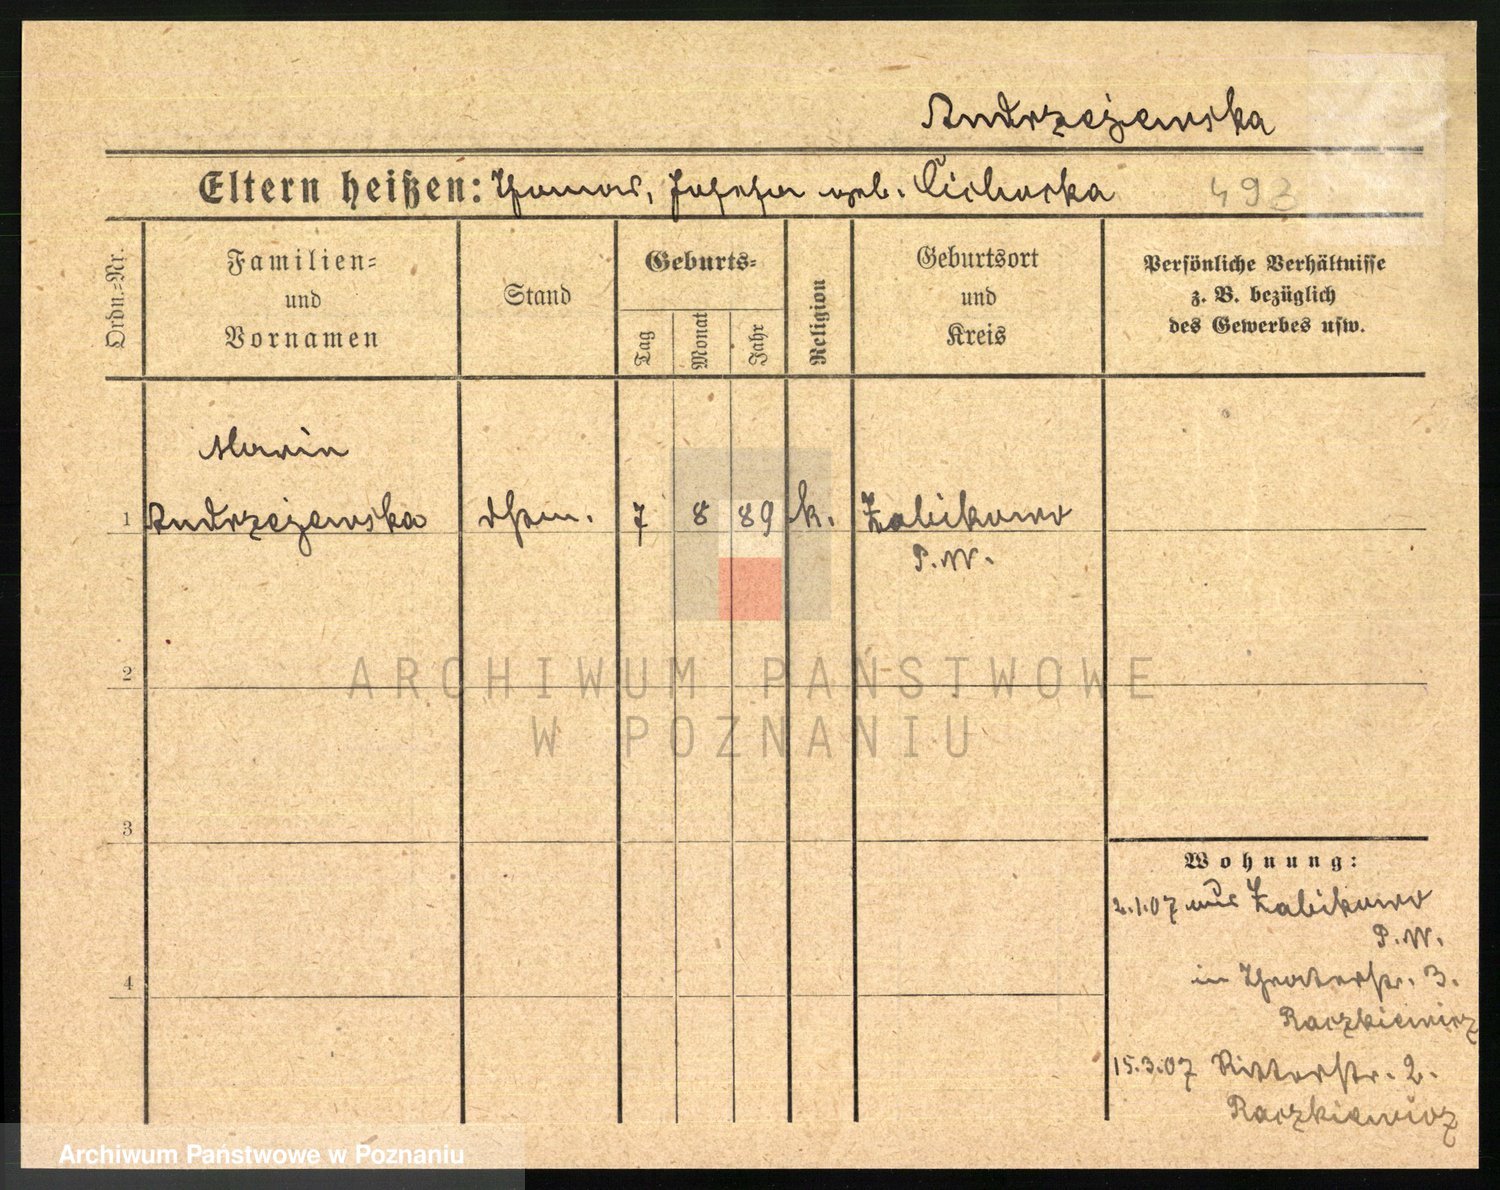 Andrzejewska
Eltern heißen: Thomas, Josefa geb. Cichocka
493
Ordn.=Nr.
Familien=
und
Vornamen
Stand
Geburts=
Tag
Monat
Jahr
Religion
Geburtsort
und
Kreis
Persönliche Verhältnisse
z. B. bezüglich
des Gewerbes usw.
Marie
1 Andrzejewska 7 8 89 k. Zabikowo
P.W.
2
3
4
Wohnung:
2.1.07 aus Zabikowo
P.W.
in Theaterstr. 3.
Raczkiewicz
15.3.07 Ritterstr. 2.
Raczkiewicz
ARCHIWUM PAŃSTWOWE
W POZNANIU
Archiwum Państwowe w Poznaniu